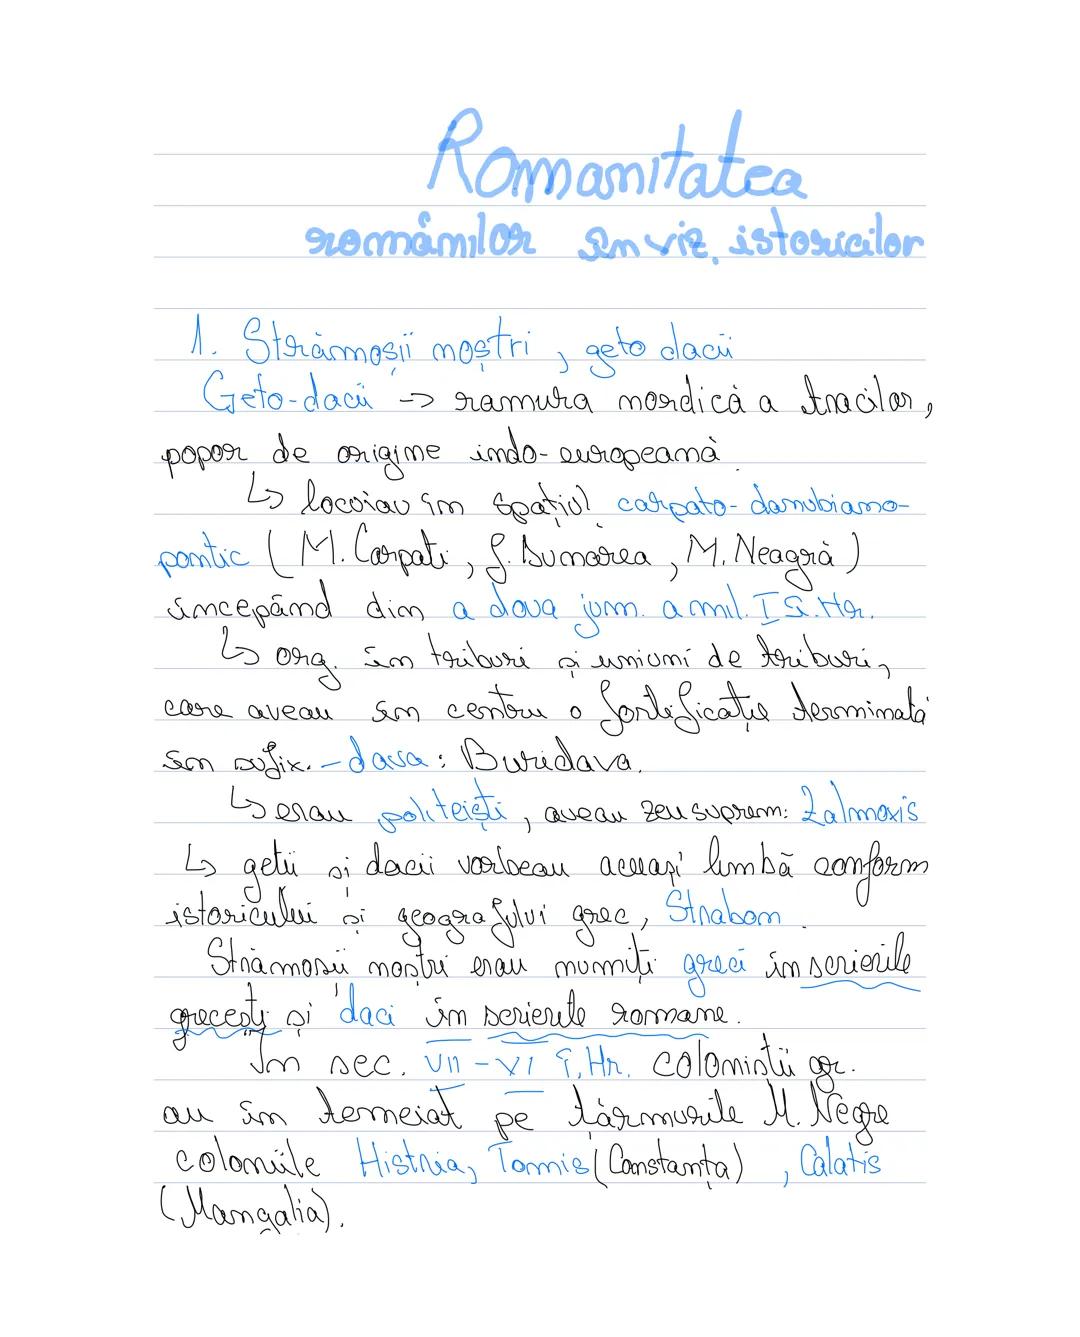 Romanitatea
românilor în viz. istoricilor
1. Strămoșii noștri, geto dacii
Geto-dacii -> ramura nordică a tracilor,
popor de origine indo-europeană.
↳ locuiau în spațiul carpato-danubiano-
pontic (M. Carpați, f. Dunărea, M. Neagră)
începând din a doua jum. a mil. I î.Hr.
↳ org. în triburi și uniuni de triburi,
care aveau în centru o fortificație terminată
în sufix. -dava: Buridava.
↳ erau politeiști, aveau zeu suprem: Zalmoxis
↳ geții și dacii vorbeau aceeași limbă conform
istoricului și geografului grec, Strabon.
Strămoșii noștri erau numiți greci în scrierile
grecești și daci în scrierile romane.
În sec. VII - VI î.Hr. coloniștii gr.
au în temeiat pe țărmurile M. Negre
coloniile Histria, Tomis (Constanța), Calatis
(Mangalia).